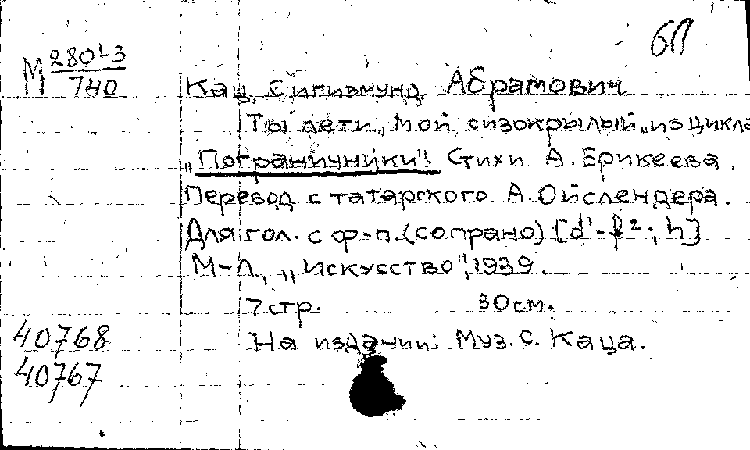 6П
М 280-3
740
Кац, Сигизмунд Абрамович
Ты лети, мой сизокрылый „из цикла
„Пограничники". Стихи А. Ерикеева.
Перевод с татарского А. Ойслендера.
Для гол. с ф-п. (сопрано) [d¹-f²; h]
М-Л., „Искусство", 1939.
7 стр. 30 см.
На издании: Муз. С. Каца.
40768
40767